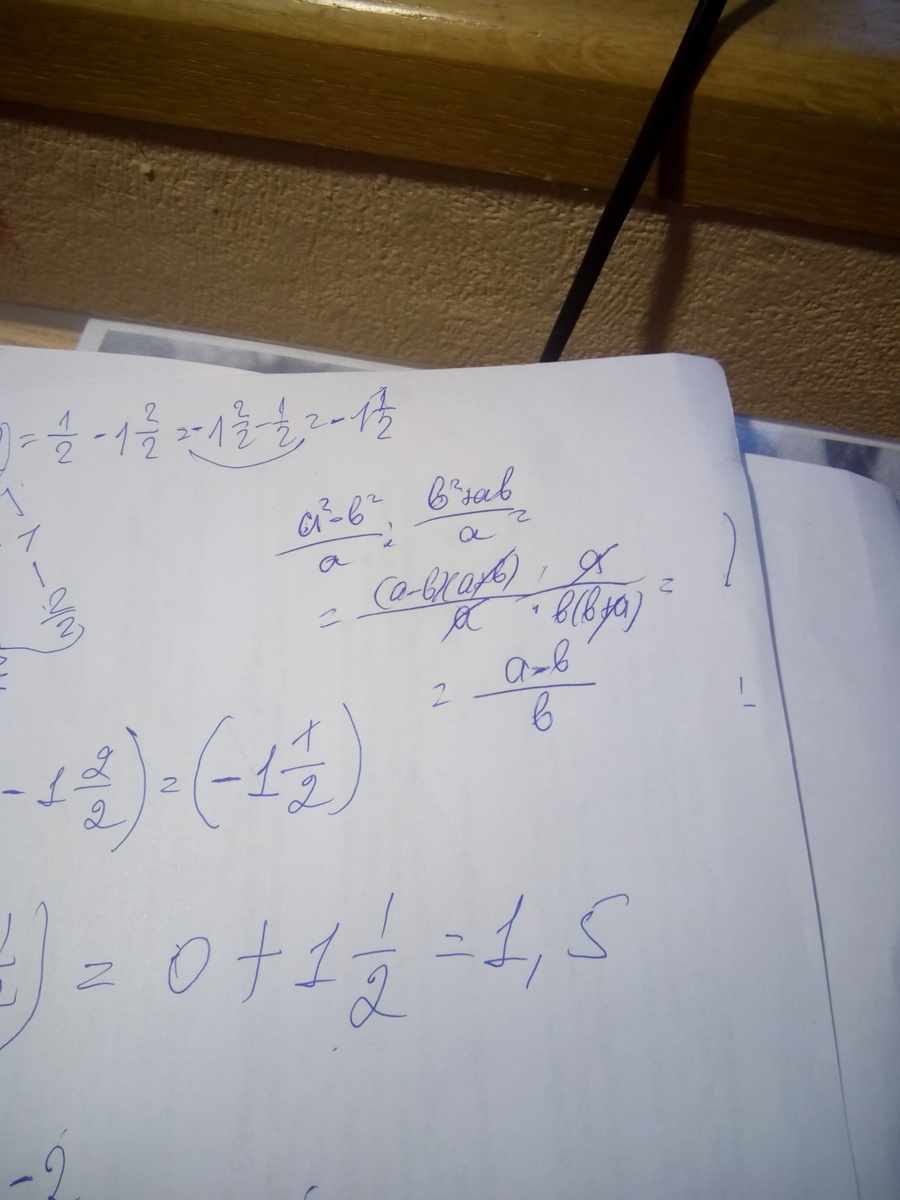 ) = 1/2 - 1 2/2 = -1 2/2 - 1/2 = -1 1/2
1
2/2
(a²-в²)/a : (в²+aв)/a =
= (a-в)(a+в)/a · a/в(в+a) =
= (a-в)/в
- 1 2/2) = (-1 1/2)
) = 0 + 1 1/2 = 1,5
-2